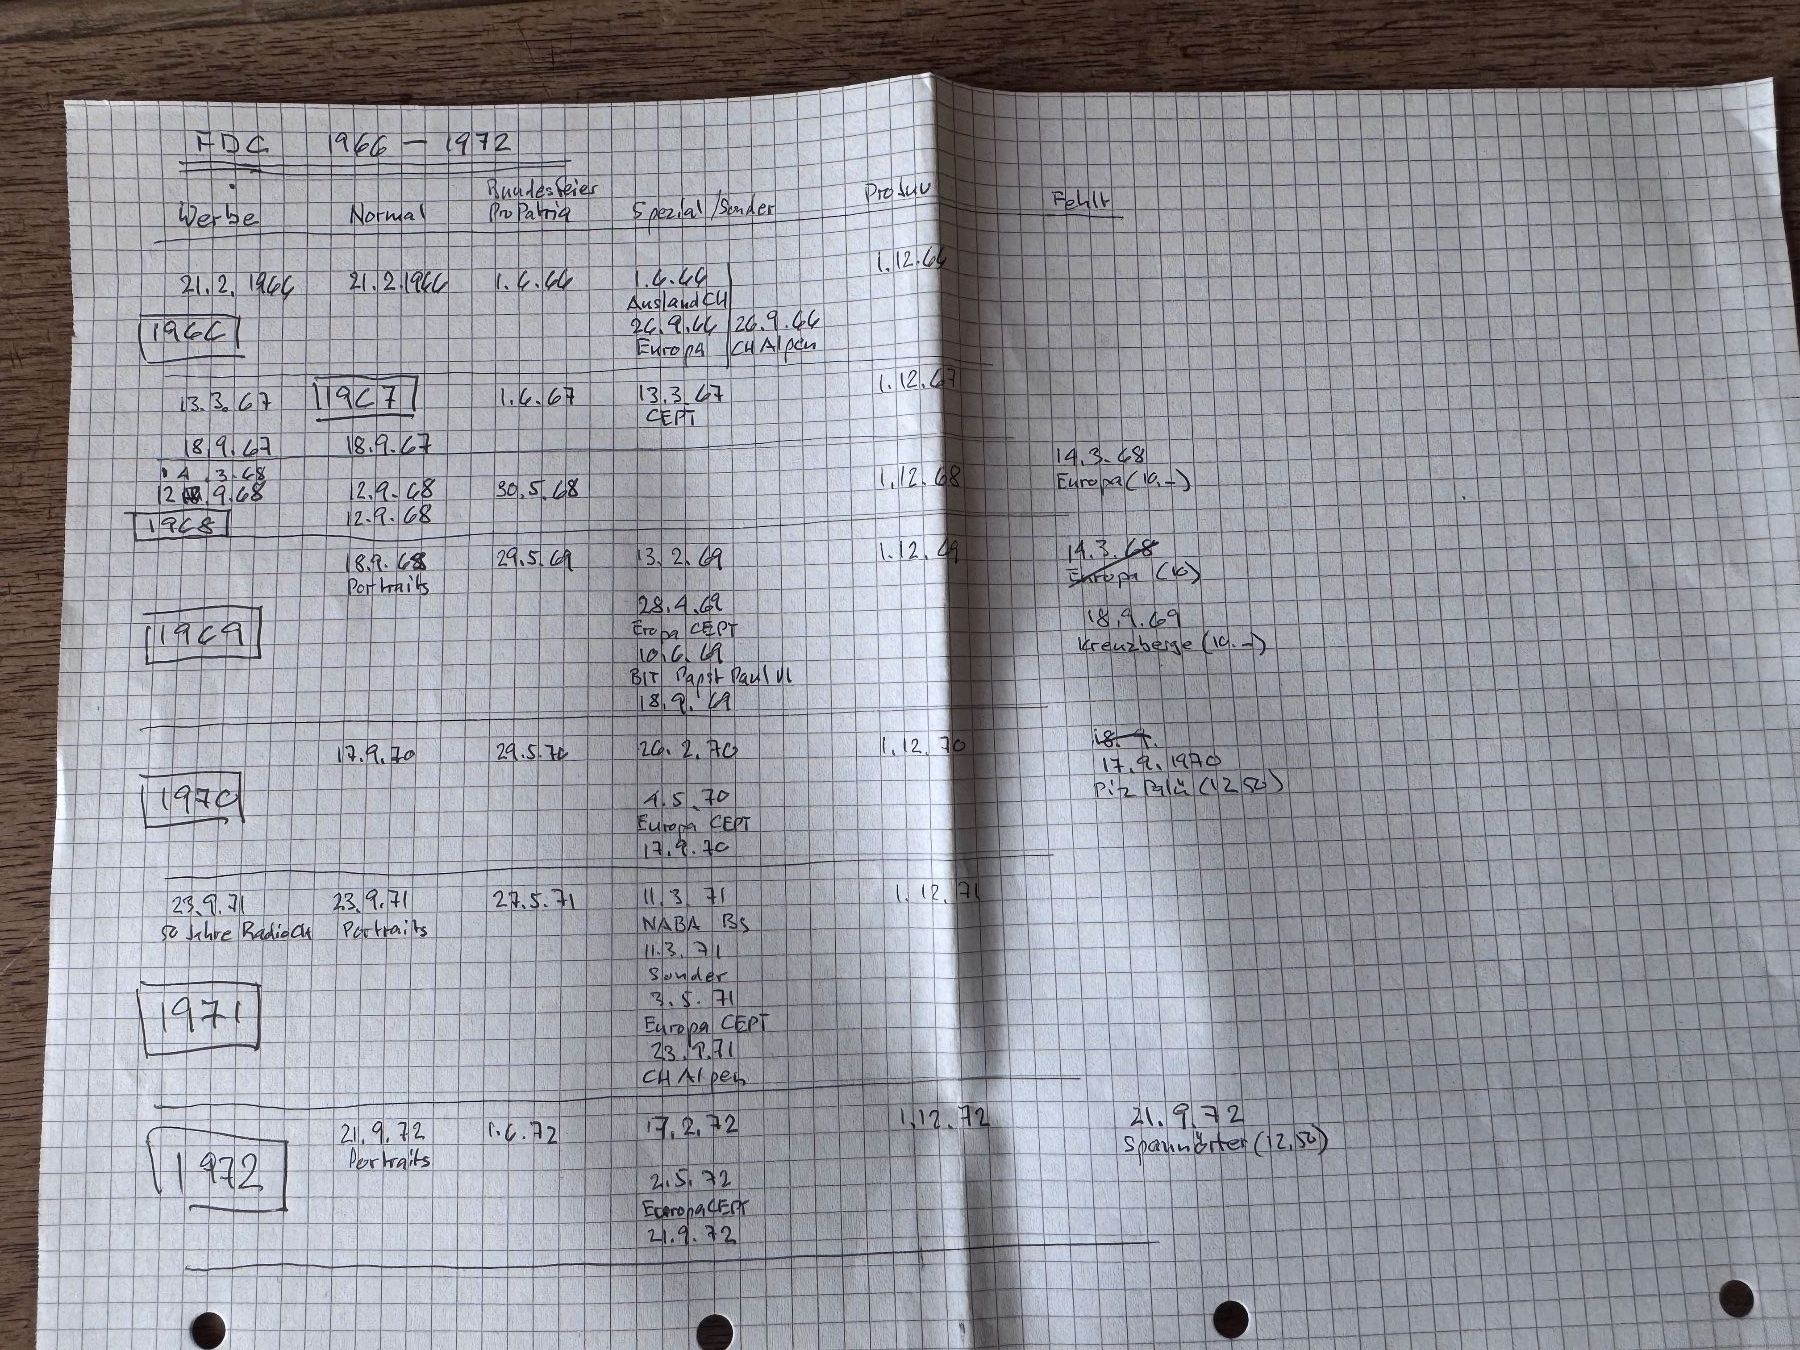 FDC 1966 – 1972
Werbe Normal Bundesfeier Pro Patria Spezial/Sonder Pro Juv Fehlt
21.2.1966 21.2.1966 1.6.66 1.6.66 1.12.66
Ausland CH
1966 26.9.66 26.9.66
Europa CH Alpen
13.3.67 1967 1.6.67 13.3.67 1.12.67
CEPT
18.9.67 18.9.67
14.3.68 14.3.68
12.9.68 12.9.68 30.5.68 1.12.68 Europa (10.–)
1968 12.9.68
18.9.68 29.5.69 13.2.69 1.12.69 14.3.68
Portraits Europa (10)
28.4.69 18.9.69
1969 Eropa CEPT Kreuzberge (10.–)
10.6.69
BIT Papst Paul VI
18.9.69
17.9.70 29.5.70 26.2.70 1.12.70 18.9.
17.9.1970
1970 4.5.70 Piz Palü (12.50)
Europa CEPT
17.9.70
23.9.71 23.9.71 27.5.71 11.3.71 1.12.71
50 Jahre Radio CH Portraits NABA BS
11.3.71
Sonder
1971 3.5.71
Europa CEPT
23.9.71
CH Alpen
21.9.72 1.6.72 17.2.72 1.12.72 21.9.72
Portraits Spannörter (12.50)
1972 2.5.72
Europa CEPT
21.9.72